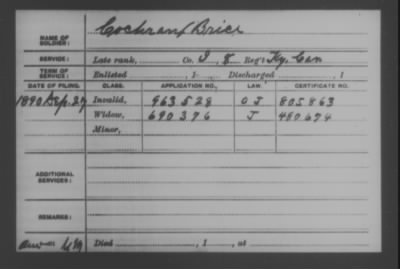 NAME OF SOLDIER: Cochran, Brice
SERVICE: Late rank, Co. I, 8 Reg't Ky. Cav
TERM OF SERVICE: Enlisted , 1 Discharged , 1
DATE OF FILING. CLASS. APPLICATION NO. LAW. CERTIFICATE NO.
1890 Sep. 27 Invalid, 963528 O J 805863
Widow, 690376 J 480674
Minor,
ADDITIONAL SERVICES:
REMARKS:
Died , 1 , at